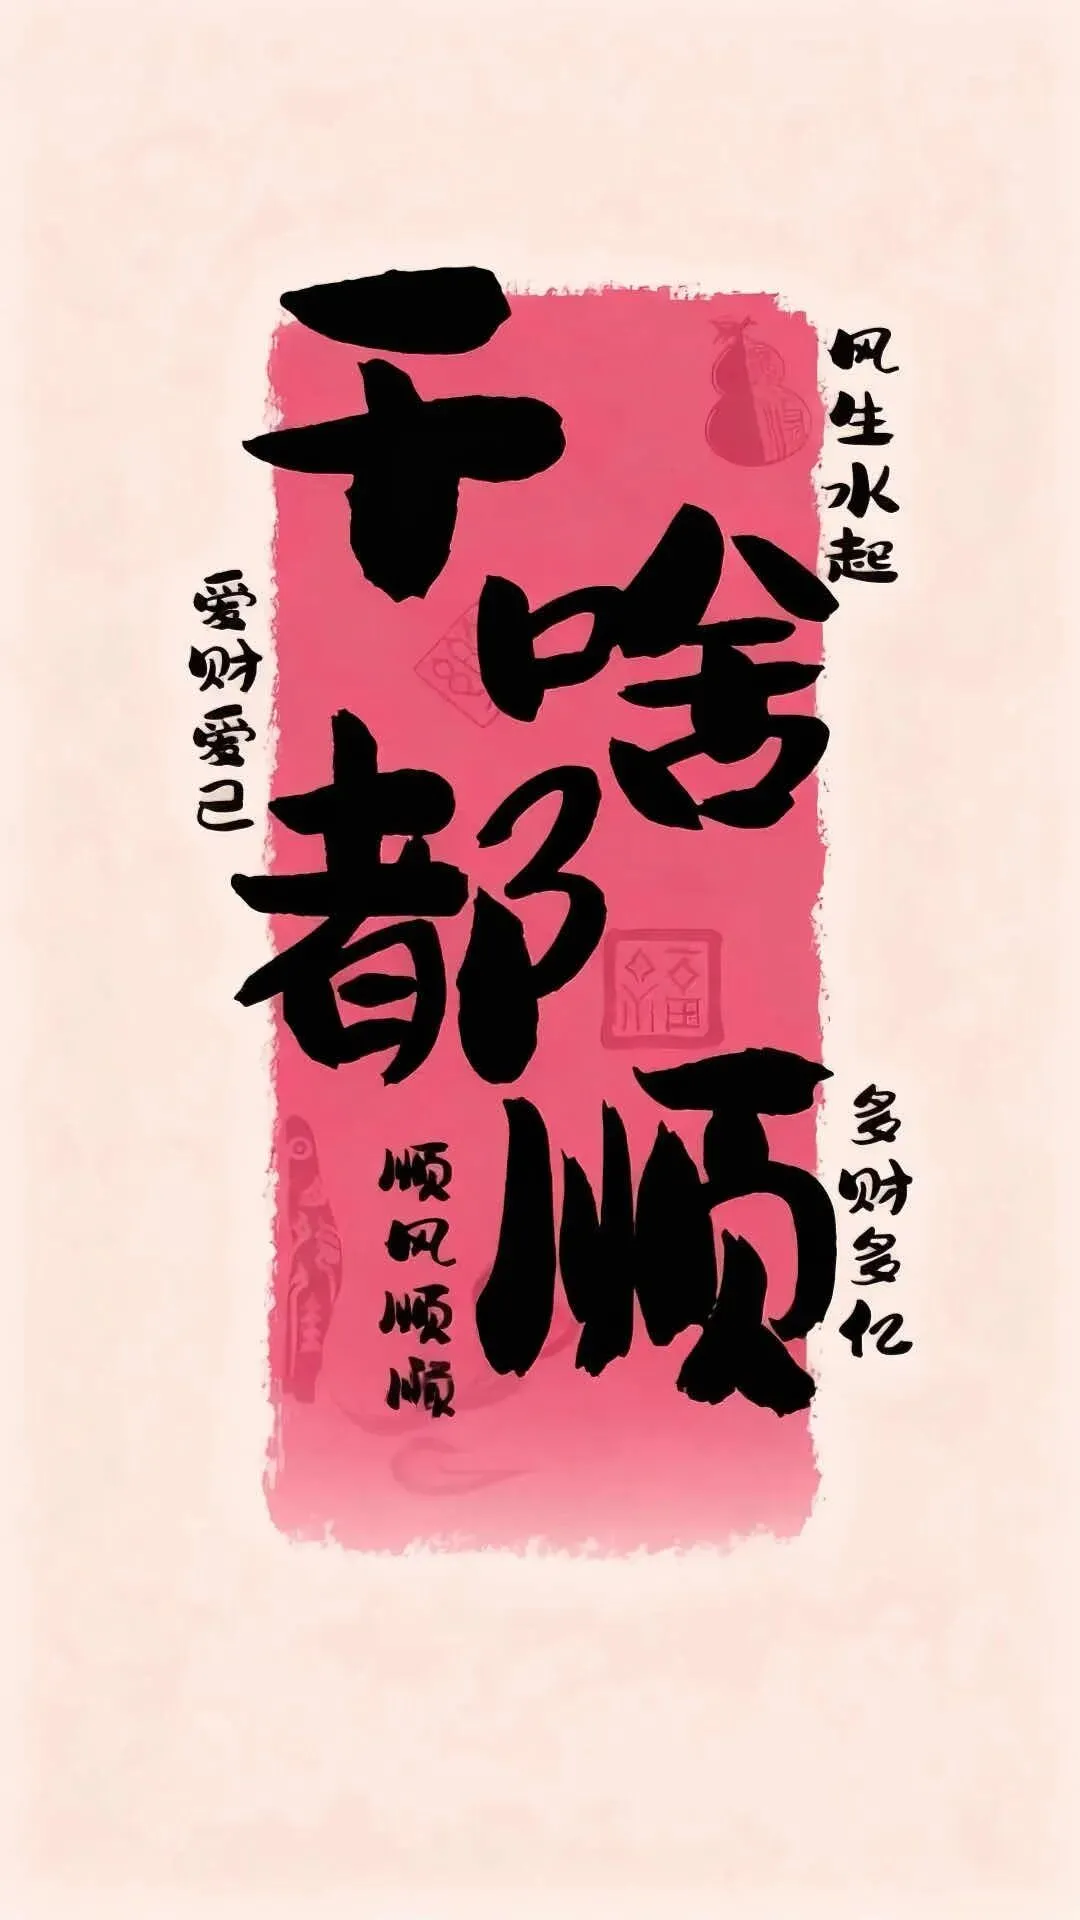 干啥都顺
风生水起
爱财爱己
多财多亿
顺风顺顺
福